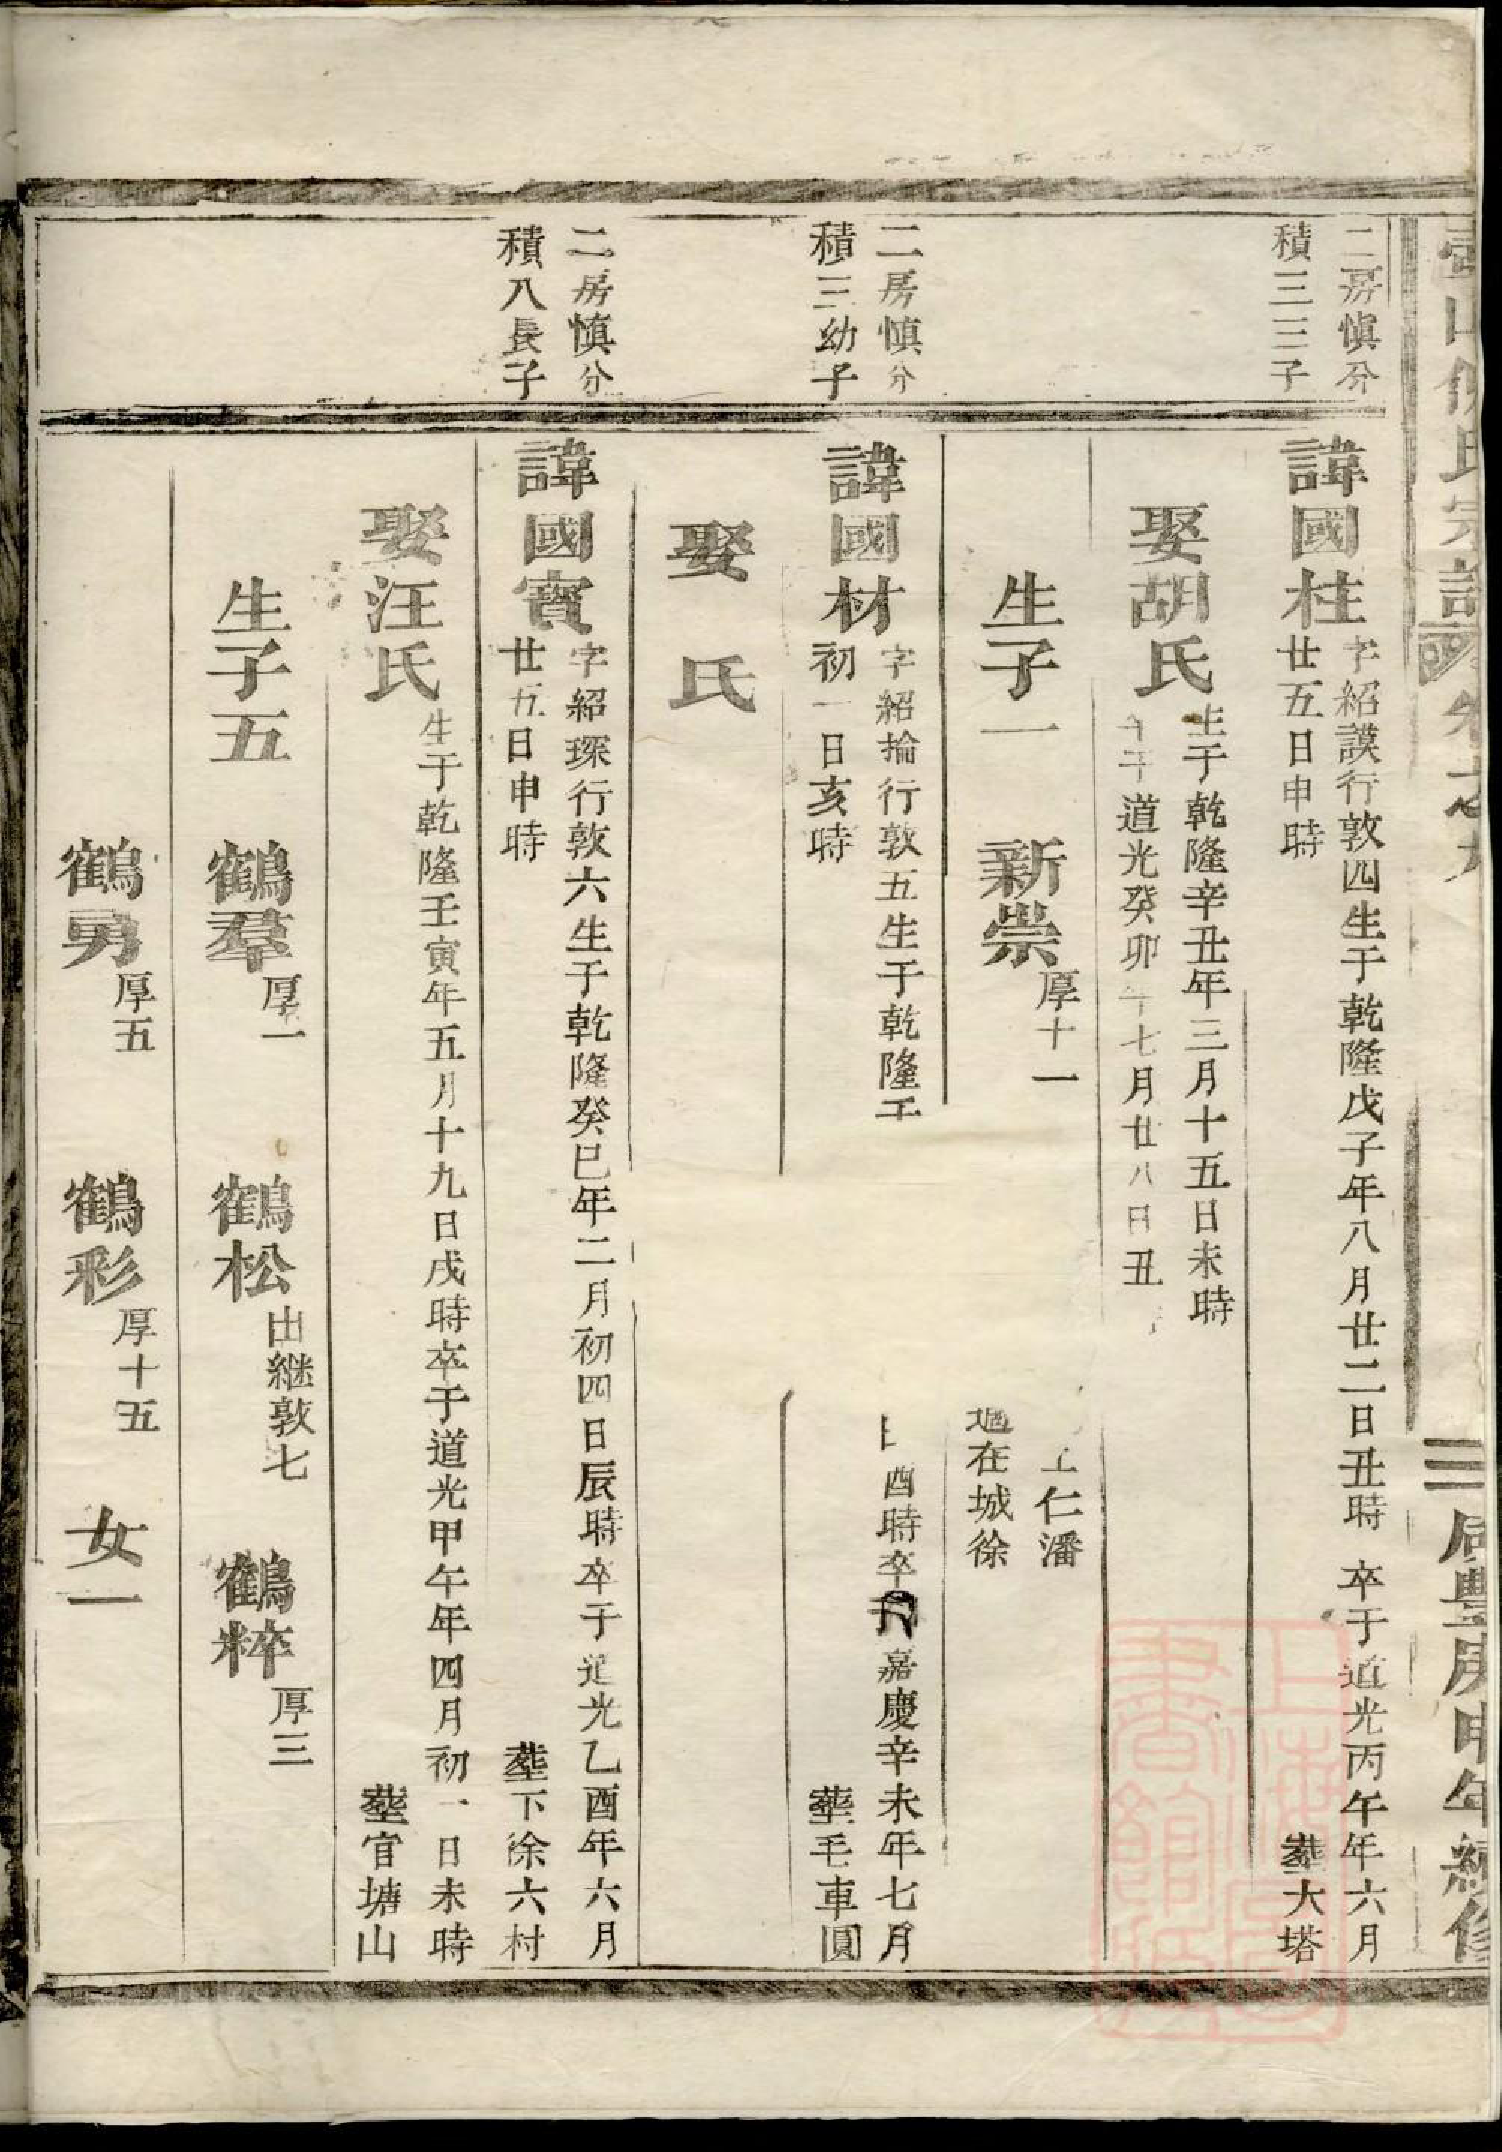 氏宗譜
二
咸豐庚申年續修
二房慎分
積三三子
諱國柱
字紹謨行敦四生于乾隆戊子年八月廿二日丑時 卒于道光丙午年六月
廿五日申時 塟大塔
娶胡氏
生于乾隆辛丑年三月十五日未時
卒于道光癸卯年七月廿八日丑
生子一 新崇
厚十一
仁潘
適在城徐
二房慎分
積三幼子
諱國材
字紹掄行敦五生于乾隆
酉時卒于嘉慶辛未年七月
初一日亥時 塟毛車圓
娶 氏
二房慎分
積八長子
諱國寶
字紹琛行敦六生于乾隆癸巳年二月初四日辰時卒于道光乙酉年六月
廿五日申時 塟下徐六村
娶汪氏
生于乾隆壬寅年五月十九日戌時卒于道光甲午年四月初一日未時
塟官塘山
生子五 鶴羣 厚一 鶴松 出継敦七 鶴粹 厚三
鶴勇 厚五 鶴彩 厚十五 女一
上海圖書館藏